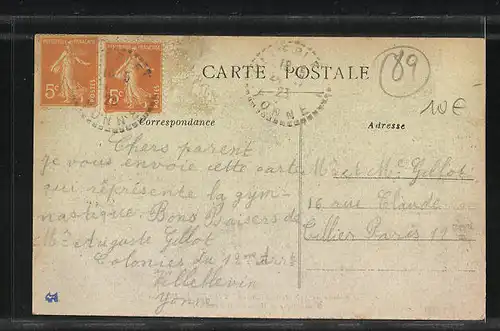 REPUBLIQUE FRANÇAISE
5c
POSTES
REPUBLIQUE FRANÇAISE
5c
POSTES
YONNE
CARTE POSTALE
18
23
YONNE
89
10€
Correspondance
Adresse
Chers parent
je vous envoie cette carte
qui représente la gym-
nastique Bons Baisers de
Mr Auguste Gillot
Colonies du 12me Arrt
Villethierry
Yonne
Mr et Me Gillot
16 rue Claude
Tillier Paris 12